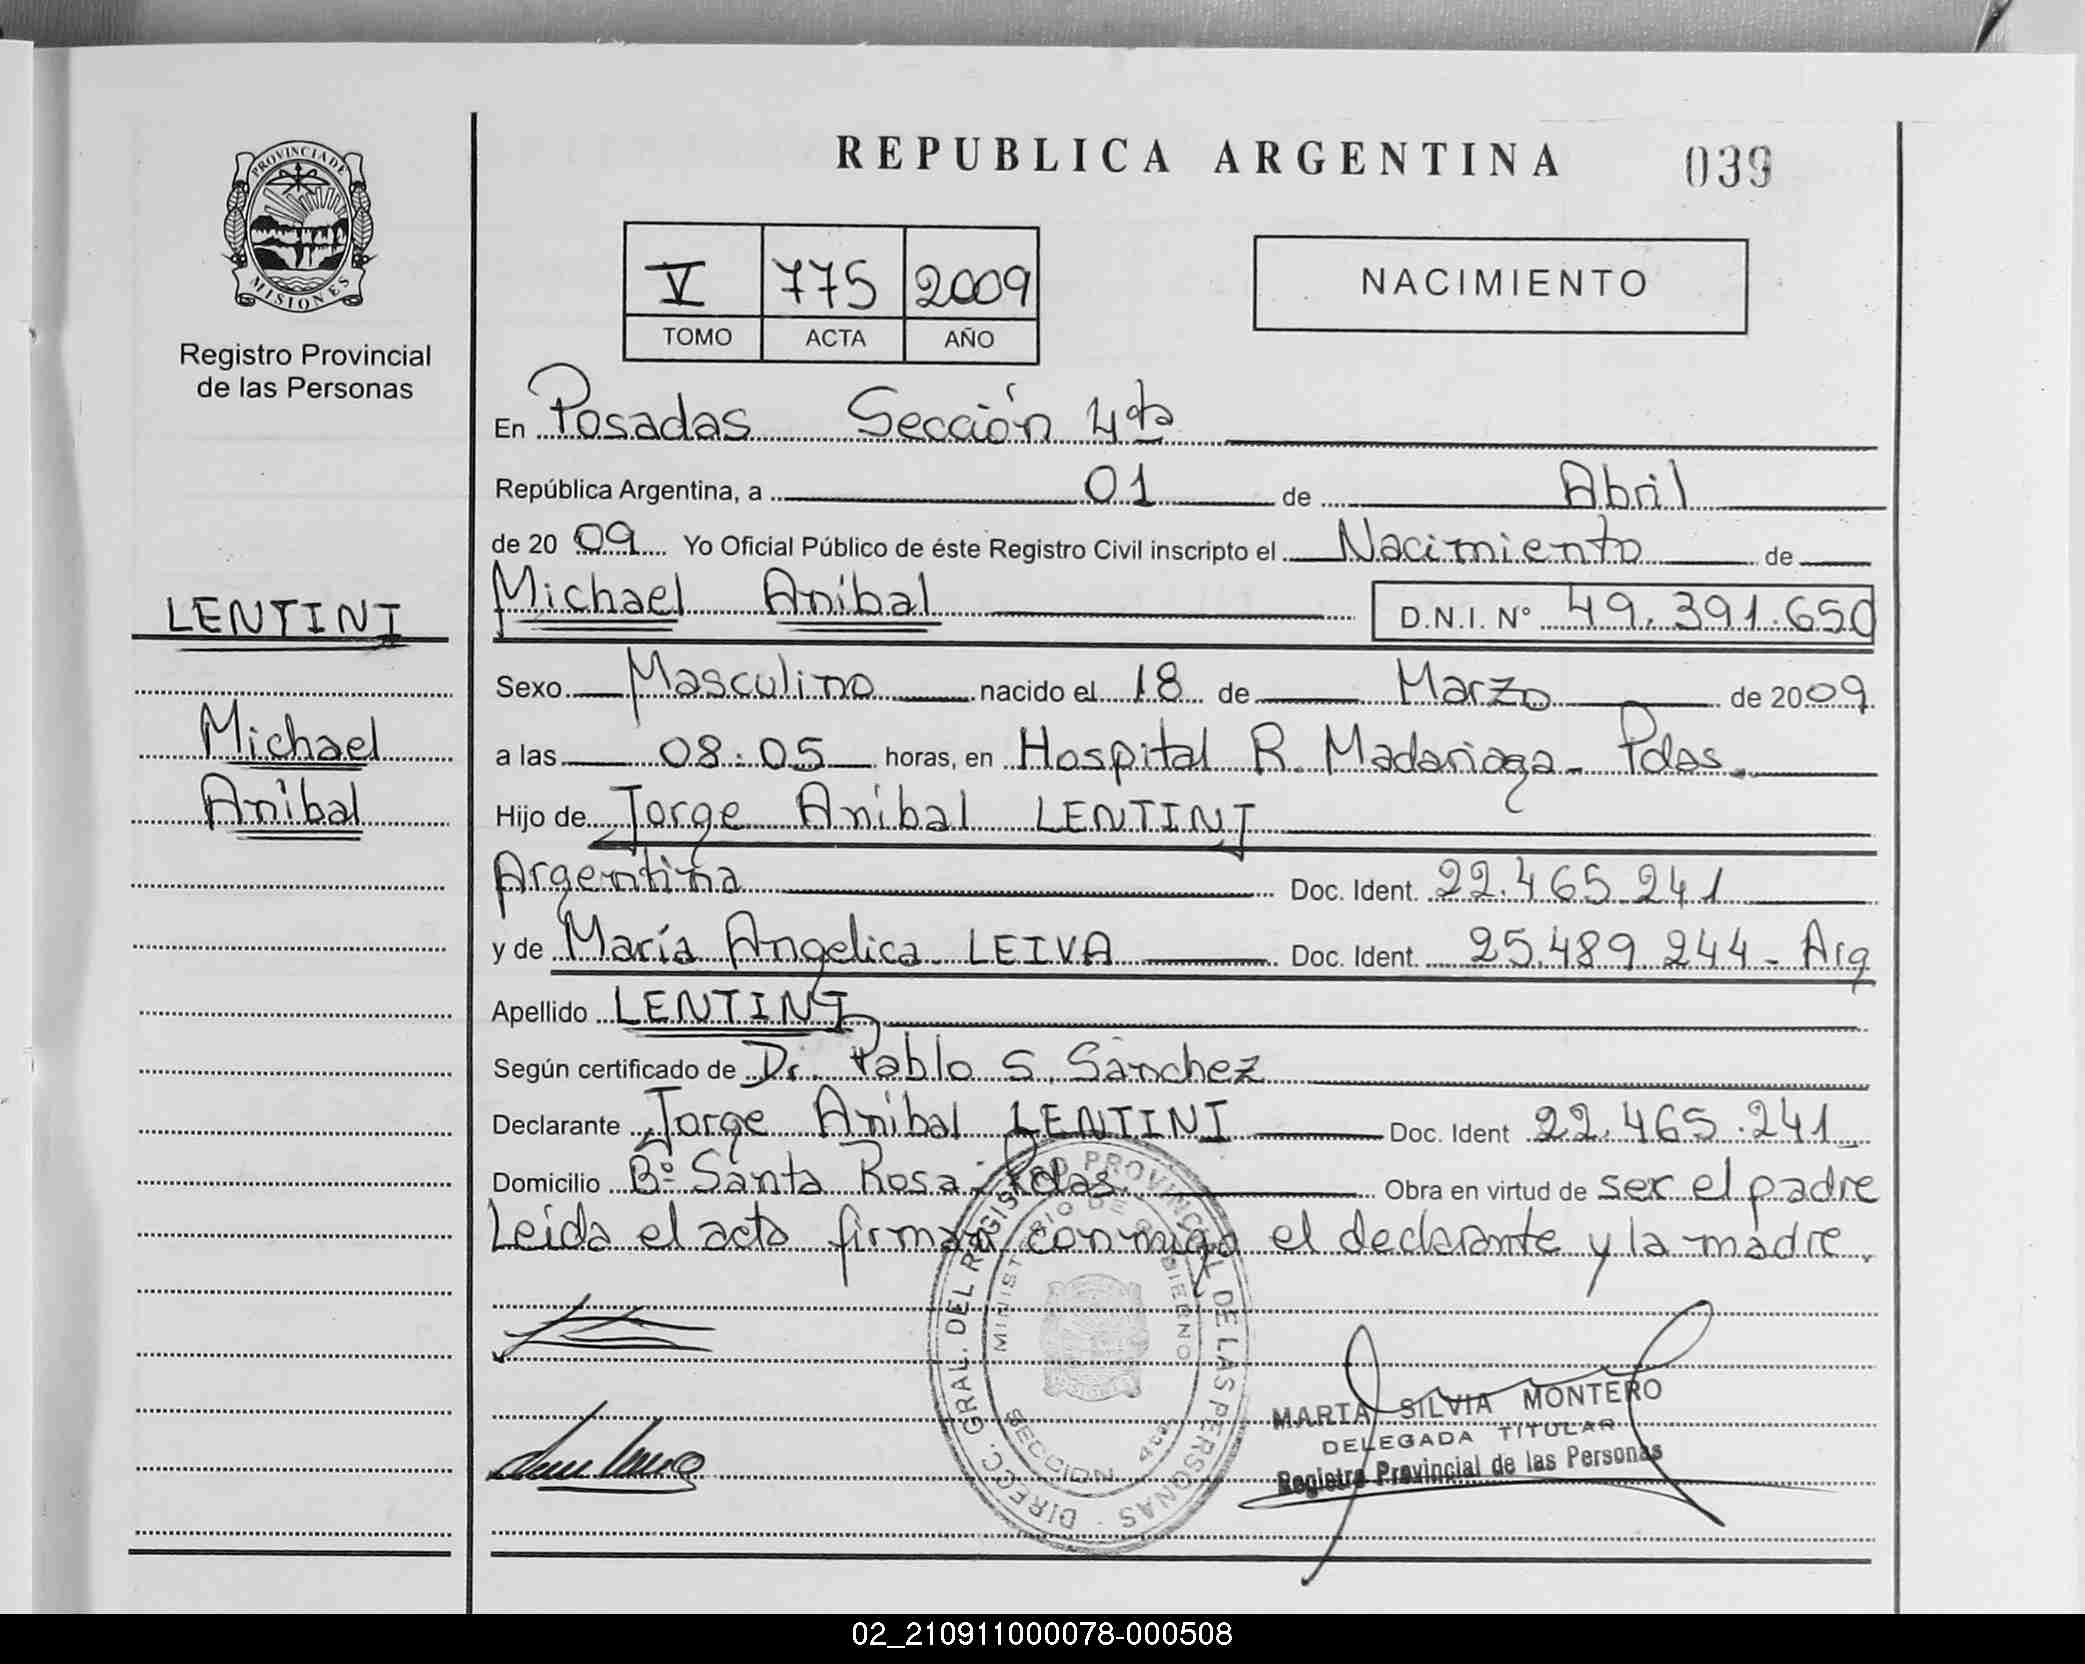 REPUBLICA ARGENTINA
039
PROVINCIA DE
MISIONES
Registro Provincial
de las Personas
V 775 2009
TOMO ACTA AÑO
NACIMIENTO
En Posadas Sección 4ta
República Argentina, a 01 de Abril
de 2009 Yo Oficial Público de éste Registro Civil inscripto el Nacimiento de
Michael Anibal D.N.I. Nº 49.391.650
LENTINI
Michael
Anibal
Sexo Masculino nacido el 18 de Marzo de 2009
a las 08:05 horas, en Hospital R. Madariaga - Pdas.
Hijo de Jorge Anibal LENTINI
Argentina Doc. Ident. 22.465.241
y de María Angelica LEIVA Doc. Ident. 25.489.244 - Arg
Apellido LENTINI
Según certificado de Dr. Pablo S. Sánchez
Declarante Jorge Anibal LENTINI Doc. Ident 22.465.241
Domicilio Bº Santa Rosa - Pdas. Obra en virtud de ser el padre
Leida el acta firman conmigo el declarante y la madre.
DIRECC. GRAL. DEL REGISTRO PROVINCIAL DE LAS PERSONAS
MINISTERIO DE GOBIERNO
SECCION 4ta
MARTA SILVIA MONTERO
DELEGADA TITULAR
Registro Provincial de las Personas
02_210911000078-000508